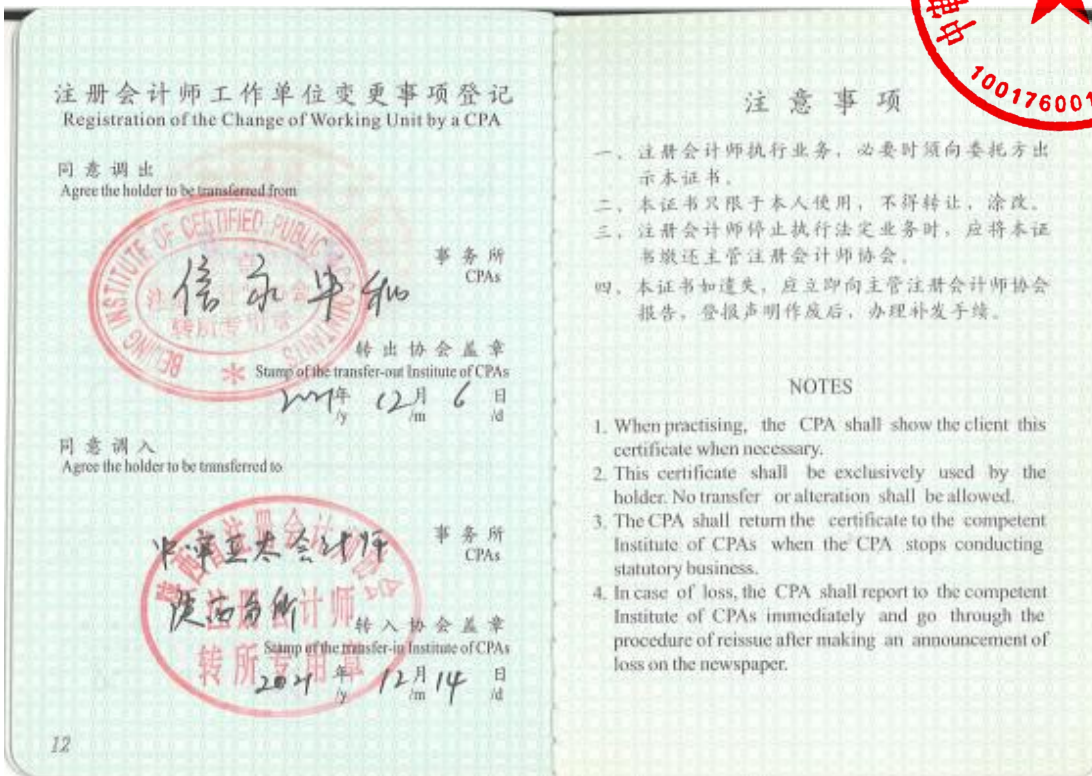 注册会计师工作单位变更事项登记
Registration of the Change of Working Unit by a CPA
同意调出
Agree the holder to be transferred from
BEIJING INSTITUTE OF CERTIFIED PUBLIC ACCOUNTANTS
信永中和
事务所
CPAs
转所专用章
转出协会盖章
Stamp of the transfer-out Institute of CPAs
2021年 12月 6 日
/y /m /d
同意调入
Agree the holder to be transferred to
中审亚太会计师
事务所
CPAs
陕西省注册会计师协会
陕西分所
注册会计师
转入协会盖章
Stamp of the transfer-in Institute of CPAs
转所专用章
2021 年 12月 14 日
/y /m /d
12
100176001
注意事项
一、注册会计师执行业务，必要时须向委托方出
示本证书。
二、本证书只限于本人使用，不得转让，涂改。
三、注册会计师停止执行法定业务时，应将本证
书缴还主管注册会计师协会。
四、本证书如遗失，应立即向主管注册会计师协会
报告，登报声明作废后，办理补发手续。
NOTES
1. When practising, the CPA shall show the client this
certificate when necessary.
2. This certificate shall be exclusively used by the
holder. No transfer or alteration shall be allowed.
3. The CPA shall return the certificate to the competent
Institute of CPAs when the CPA stops conducting
statutory business.
4. In case of loss, the CPA shall report to the competent
Institute of CPAs immediately and go through the
procedure of reissue after making an announcement of
loss on the newspaper.